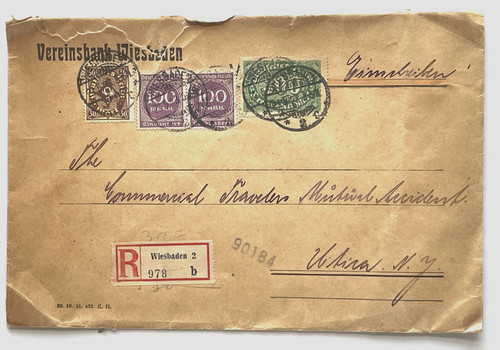 Vereinsbank Wiesbaden
Einschreiben!
30 30
100 100
MARK MARK
The
Commercial Travelers Mutual Accident.
R Wiesbaden 2
978 b
90184
Utica. N. Y.